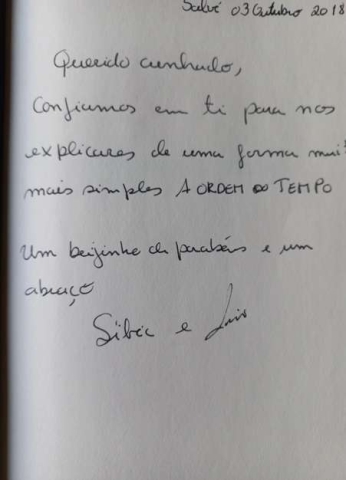 Salvé 03 Outubro 2018
Querido cunhado,
Confiamos em ti para nos
explicares de uma forma mui
mais simples A ORDEM DO TEMPO
Um beijinho de parabéns e um
abraço
Sílvia e Luis